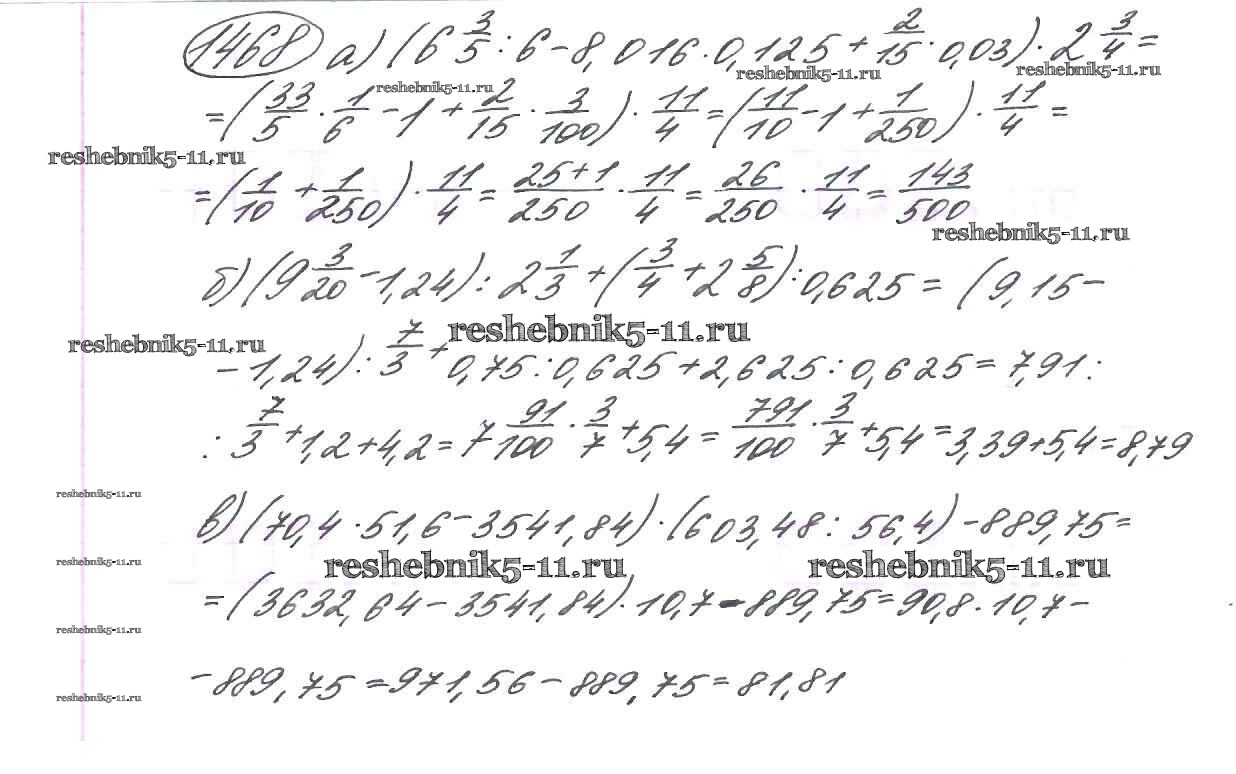 1468 а) (6 3/5 : 6 − 8,016 · 0,125 + 2/15 · 0,03) · 2 3/4 =
reshebnik5-11.ru reshebnik5-11.ru
reshebnik5-11.ru
= (33/5 · 1/6 − 1 + 2/15 · 3/100) · 11/4 = (11/10 − 1 + 1/250) · 11/4 =
reshebnik5-11.ru
= (1/10 + 1/250) · 11/4 = 25+1/250 · 11/4 = 26/250 · 11/4 = 143/500
reshebnik5-11.ru
б) (9 3/20 − 1,24) : 2 1/3 + (3/4 + 2 5/8) : 0,625 = (9,15 −
reshebnik5-11.ru reshebnik5-11.ru
− 1,24) : 7/3 + 0,75 : 0,625 + 2,625 : 0,625 = 7,91 :
: 7/3 + 1,2 + 4,2 = 7 91/100 · 3/7 + 5,4 = 791/100 · 3/7 + 5,4 = 3,39 + 5,4 = 8,79
reshebnik5-11.ru
в) (70,4 · 51,6 − 3541,84) · (603,48 : 56,4) − 889,75 =
reshebnik5-11.ru reshebnik5-11.ru reshebnik5-11.ru
= (3632,64 − 3541,84) · 10,7 − 889,75 = 90,8 · 10,7 −
reshebnik5-11.ru
− 889,75 = 971,56 − 889,75 = 81,81
reshebnik5-11.ru